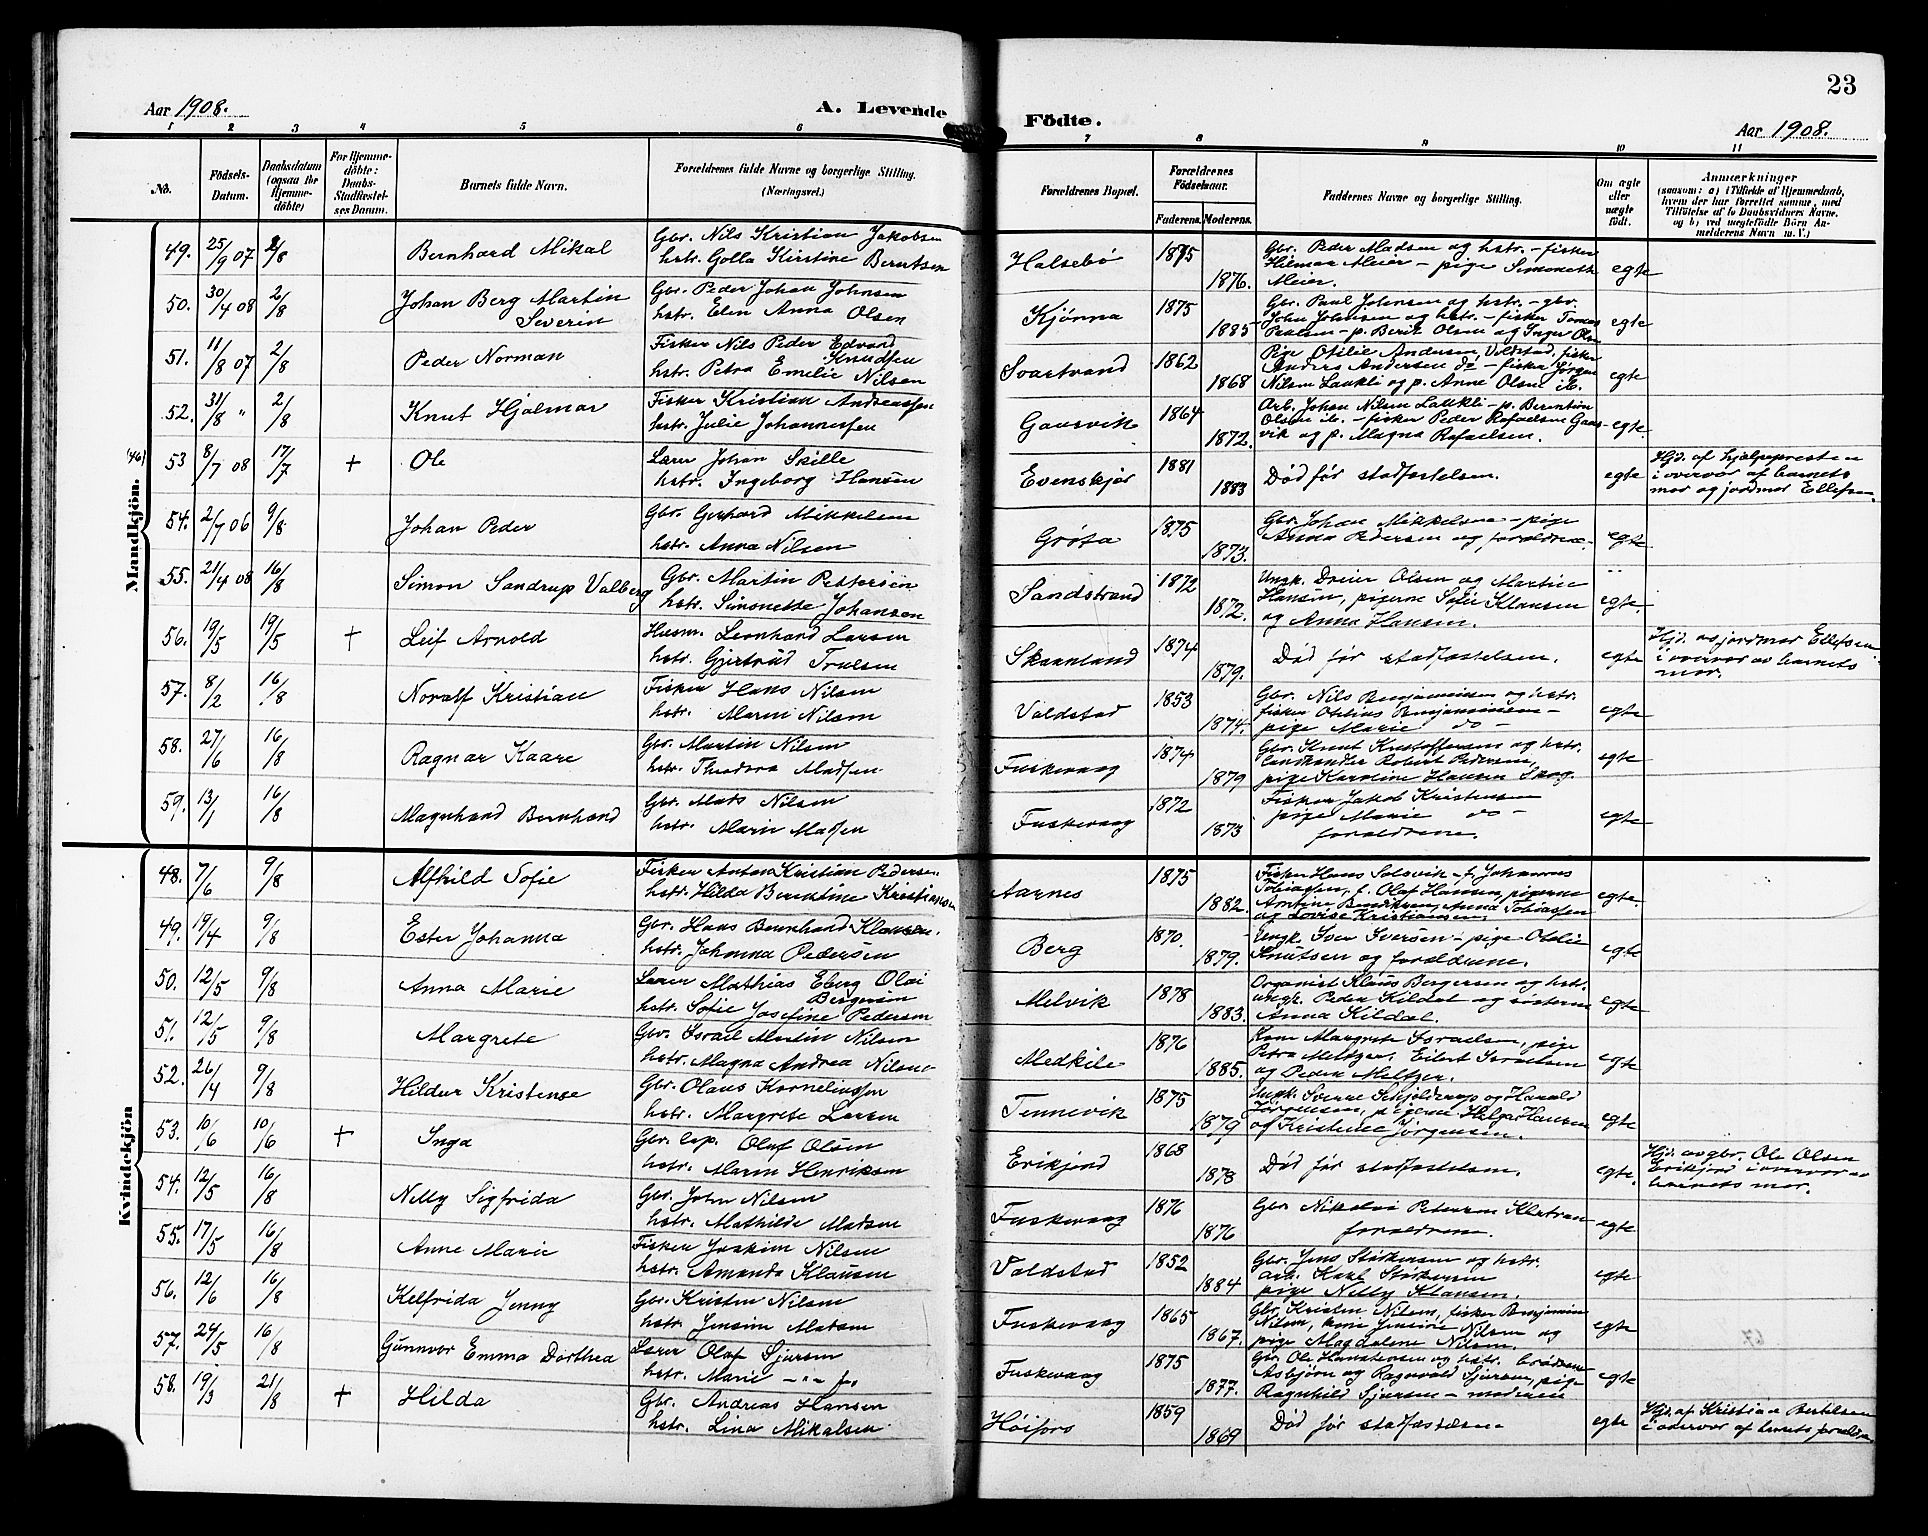 23
Aar 1908.
A. Levende Födte.
Aar 1908.
1 2 3 4 5 6 7 8 9 10 11
No. Födsels-Datum. Daabsdatum (ogsaa for Hjemmedöbte) For Hjemmedöbte: Daabs-Stadfæstelses Datum. Barnets fulde Navn. Forældrenes fulde Navne og borgerlige Stilling. (Næringsvei.) Forældrenes Bopæl. Forældrenes Födselsaar. Faderens. Moderens. Faddernes Navne og borgerlige Stilling. Om ægte eller uægte födt. Anmærkninger
(saasom: a) i Tilfælde af Hjemmedaab,
hvem der har forrettet samme, med
Tilföielse af to Daabsvidners Navne,
og b) ved uægtefödte Börn Anmelderens Navn m. V.)
Mandkjön. (46)
49. 25/9 07 2/8 Bernhard Mikal Gbr. Nils Kristian Jakobsen Halsebø 1875 Gbr. Peder Madsen og hstr. - fisker
hstr. Golla Kirstine Berntsen 1876. Hilmar Meier - pige Simonette Meier. egte
50. 30/4 08 2/8 Johan Berg Martin Severin Gbr. Peder Johan Johnsen Kjønna 1875 Gbr. Paul Johansen og hstr. - gbr.
hstr. Elen Anna Olsen 1885 John Johnsen og hstr. - fisker Tomas Paulsen - p. Berit Olsen og Inger Olsen egte
51. 11/8 07 2/8 Peder Norman Fisker Nils Peder Edvard Knudsen Svartvand 1862 Pige Otilie Andersen, Voldstad, fisker
hstr. Petra Emelie Nilsen 1868 Anders Andersen do - fisker Jørgen Nilsen Laukli og p. Anne Olsen ib. egte
52. 31/8 " 2/8 Knut Hjalmar Fisker Kristian Andreassen Gausvik 1864 Arb. Johan Nilsen Laukli - p. Berentine
hstr. Julie Johannessen 1872. Olsen ib. - fisker Peder Rafaelsen Gausvik og p. Magna Rafaelsen. egte.
53 8/7 08 17/7 + Ole Lærer Johan Skille Evenskjær 1881 Hjd. af hjælpepresten
hstr. Ingeborg Hansen 1883 Død før stadfæstelsen. egte i overvær af barnets mor og jordmor Ellefsen.
54. 2/7 06 9/8 Johan Peder Gbr. Gerhard Mikkelsen Grøta 1875 Gbr. Johan Mikkelsen - pige
hstr. Anna Nilsen 1873. Anna Pedersen og forældrene. egte
55. 21/4 08 16/8 Simon Sandrup Valberg Gbr. Martin Pettersen Sandstrand 1872 Ungk. Dreier Olsen og Martin
hstr. Simonette Johansen 1872. Hansen, pigerne Sofie Klausen og Anna Hansen. egte.
56. 19/5 19/5 + Leif Arnold Husm. Leonhard Larsen Skaanland 1874 Hjd. av jordmor Ellefsen
hstr. Gjertrud Trulsen 1879. Død før stadfæstelsen. egte i overvær av barnets mor.
57. 8/2 16/8 Noralf Kristian Fisker Hans Nilsen Voldstad 1853 Gbr. Nils Benjaminsen og hstr.
hstr. Marie Nilsen 1874. fisker Otelius Benjaminsen - pige Marie do - egte
58. 27/6 16/8 Ragnar Kaare Gbr. Martin Nilsen Fuskevaag 1874 Gbr. Knut Kristoffersen og hstr.
hstr. Theodora Madsen 1879 landhandler Robert Pedersen, pige Karoline Hansen Skog. egte
59. 13/1 16/8 Magnhard Bernhard Gbr. Mats Nilsen Fuskevaag 1872 Fisker Jakob Kristensen
hstr. Marie Madsen 1873 pige Marie do - forældrene. egte
Kvindekjön
48. 7/6 9/8 Alfhild Sofie Fisker Anton Kristian Pedersen Aarnes 1875 Fisker Hans Solsvik - f. Johannes
hstr. Hilda Berntine Kristiansen 1882. Tobiassen, f. Olaf Hansen, pigerne Arntine Bendiksen, Anna Tobiassen og Lovise Kristiansen. egte.
49. 19/4 9/8 Ester Johanna Gbr. Hans Bernhard Klausen. Berg 1870. Ungk. Iver Iversen - pige Otelie
hstr. Johanna Pedersen 1879. Knutsen og forældrene. egte
50. 12/5 9/8 Anna Marie Lærer Mathias Eberg Olai Bergersen Melvik 1878 Organist Klaus Bergersen og hst.
hstr. Sofie Josefine Pedersen 1883. ungk. Peder Kildal og søsteren Anna Kildal. egte
51. 12/5 9/8 Margrete Gbr. Israel Martin Nilsen Medkile 1876 Kone Margrete Israelsen, pige
hstr. Magna Andrea Nilsen 1885. Petra Meltzer, Eilert Israelsen og Peder Meltzer. egte
52. 26/14 9/8 Hildur Kristense Gbr. Olaus Korneliussen Tennevik 1875 Ungk. Sverre Schjelderup og Harald
hstr. Margrete Larsen 1879 Jørgensen, pigerne Helga Hansen og Kristense Jørgensen. egte
53. 10/6 10/6 + Inga Gbr. exp. Olaf Olsen Erikjord 1868 Hjd. av gbr. Ole Olsen
hstr. Marin Henriksen 1878 Død før stadfæstelsen. egte. Erikjord i overvær av barnets mor.
54. 12/5 16/8 Nelly Sigfrida Gbr. John Nilsen Fuskevaag 1876 Gbr. Nikolai Petersen Klatran
hstr. Mathilde Madsen 1876 forældrene. egte
55. 17/5 16/8 Anne Marie Fisker Joakim Nilsen Voldstad 1852 Gbr. Jens Størkersen og hstr.
hstr. Amanda Klausen 1884 arb. Karl Størkersen pige Nelly Klausen. egte
56. 12/6 16/8 Kelfrida Jenny Gbr. Kristen Nilsen Fuskevaag 1865 Gbr. Kristen Nilsen, fisker Benjamin
hstr. Jensine Madsen 1867. Nilsen, kone Jensine Nilsen og pige Magdalene Nilsen. egte
57. 24/5 16/8 Gunnvor Emma Dorthea Lærer Olaf Sjursen Fuskevaag 1875 Gbr. Ole Hanstensen og hstr. brødrene
hstr. Marie - " - 1877. Asbjørn og Ragnvald Sjursen, pige Ragnhild Sjursen - moderen egte
58. 19/3 21/8 + Hilda Gbr. Andreas Hansen Høifors 1859 Hjd. af Kristian Bertelsen
hstr. Lina Mikalsen 1869 Død før stadfæstelsen egte i overvær af barnets forældre.